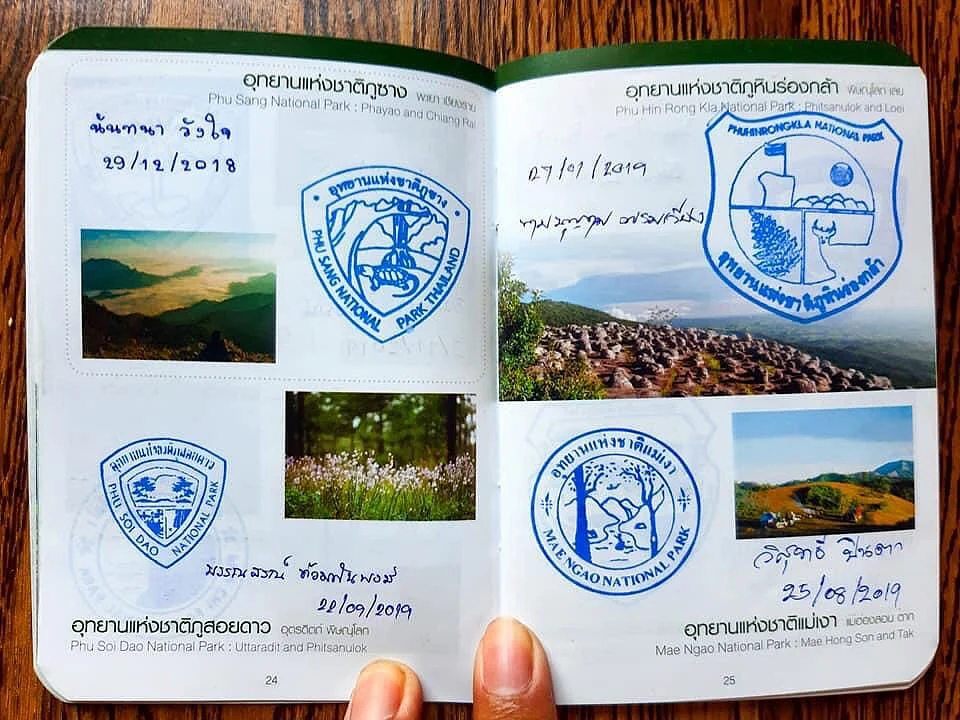 อุทยานแห่งชาติภูซาง พะเยา เชียงราย
Phu Sang National Park : Phayao and Chiang Rai
นันทนา วังใจ
29/12/2018
อุทยานแห่งชาติภูซาง
PHU SANG NATIONAL PARK THAILAND
PHU SOI DAO NATIONAL PARK
22/09/2019
อุทยานแห่งชาติภูสอยดาว อุตรดิตถ์ พิษณุโลก
Phu Soi Dao National Park : Uttaradit and Phitsanulok
24
อุทยานแห่งชาติภูหินร่องกล้า พิษณุโลก เลย
Phu Hin Rong Kla National Park : Phitsanulok and Loei
PHUHINRONGKLA NATIONAL PARK
27/01/2019
อุทยานแห่งชาติภูหินร่องกล้า
อุทยานแห่งชาติแม่เงา
MAE NGAO NATIONAL PARK
25/08/2019
อุทยานแห่งชาติแม่เงา แม่ฮ่องสอน ตาก
Mae Ngao National Park : Mae Hong Son and Tak
25